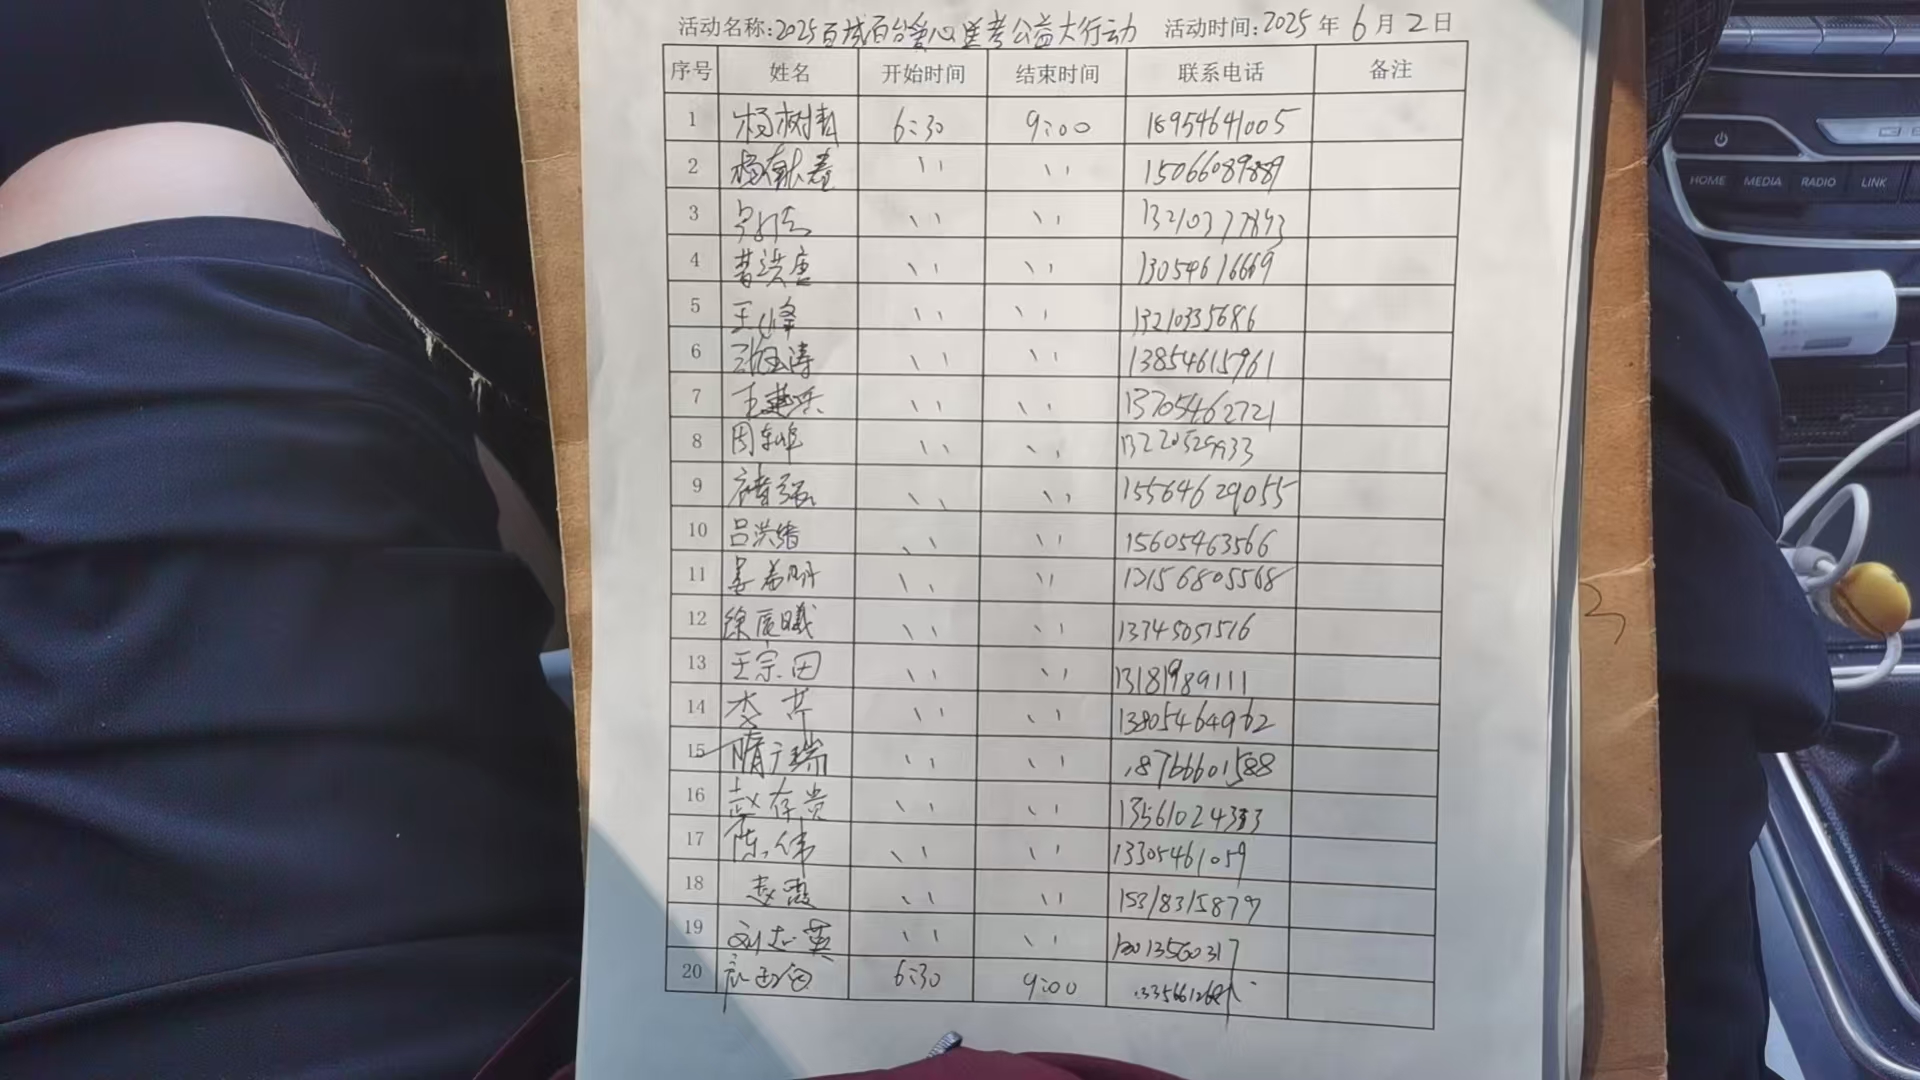 活动名称:2025百城百台爱心送考公益大行动 活动时间:2025年6月2日
序号 姓名 开始时间 结束时间 联系电话 备注
1 杨树青 6:30 9:00 18954641005
2 杨献春 〃 〃 15066089889
3 〃 〃 13210377843
4 曹洪唐 〃 〃 13054616669
5 王峰 〃 〃 13210335686
6 张玉涛 〃 〃 13854615961
7 王建乐 〃 〃 13705462721
8 周东峰 〃 〃 13220529933
9 褚强 〃 〃 15564629055
10 吕洪绪 〃 〃 15605463566
11 姜希明 〃 〃 12156805568
12 徐晨曦 〃 〃 13345051516
13 王宗田 〃 〃 13181989111
14 李芹 〃 〃 13805464962
15 隋广瑞 〃 〃 18766601588
16 赵存贵 〃 〃 13561024333
17 陈伟 〃 〃 13305461059
18 赵霞 〃 〃 15318315879
19 刘志英 〃 〃 13013560317
20 6:30 9:00
HOME MEDIA RADIO LINK